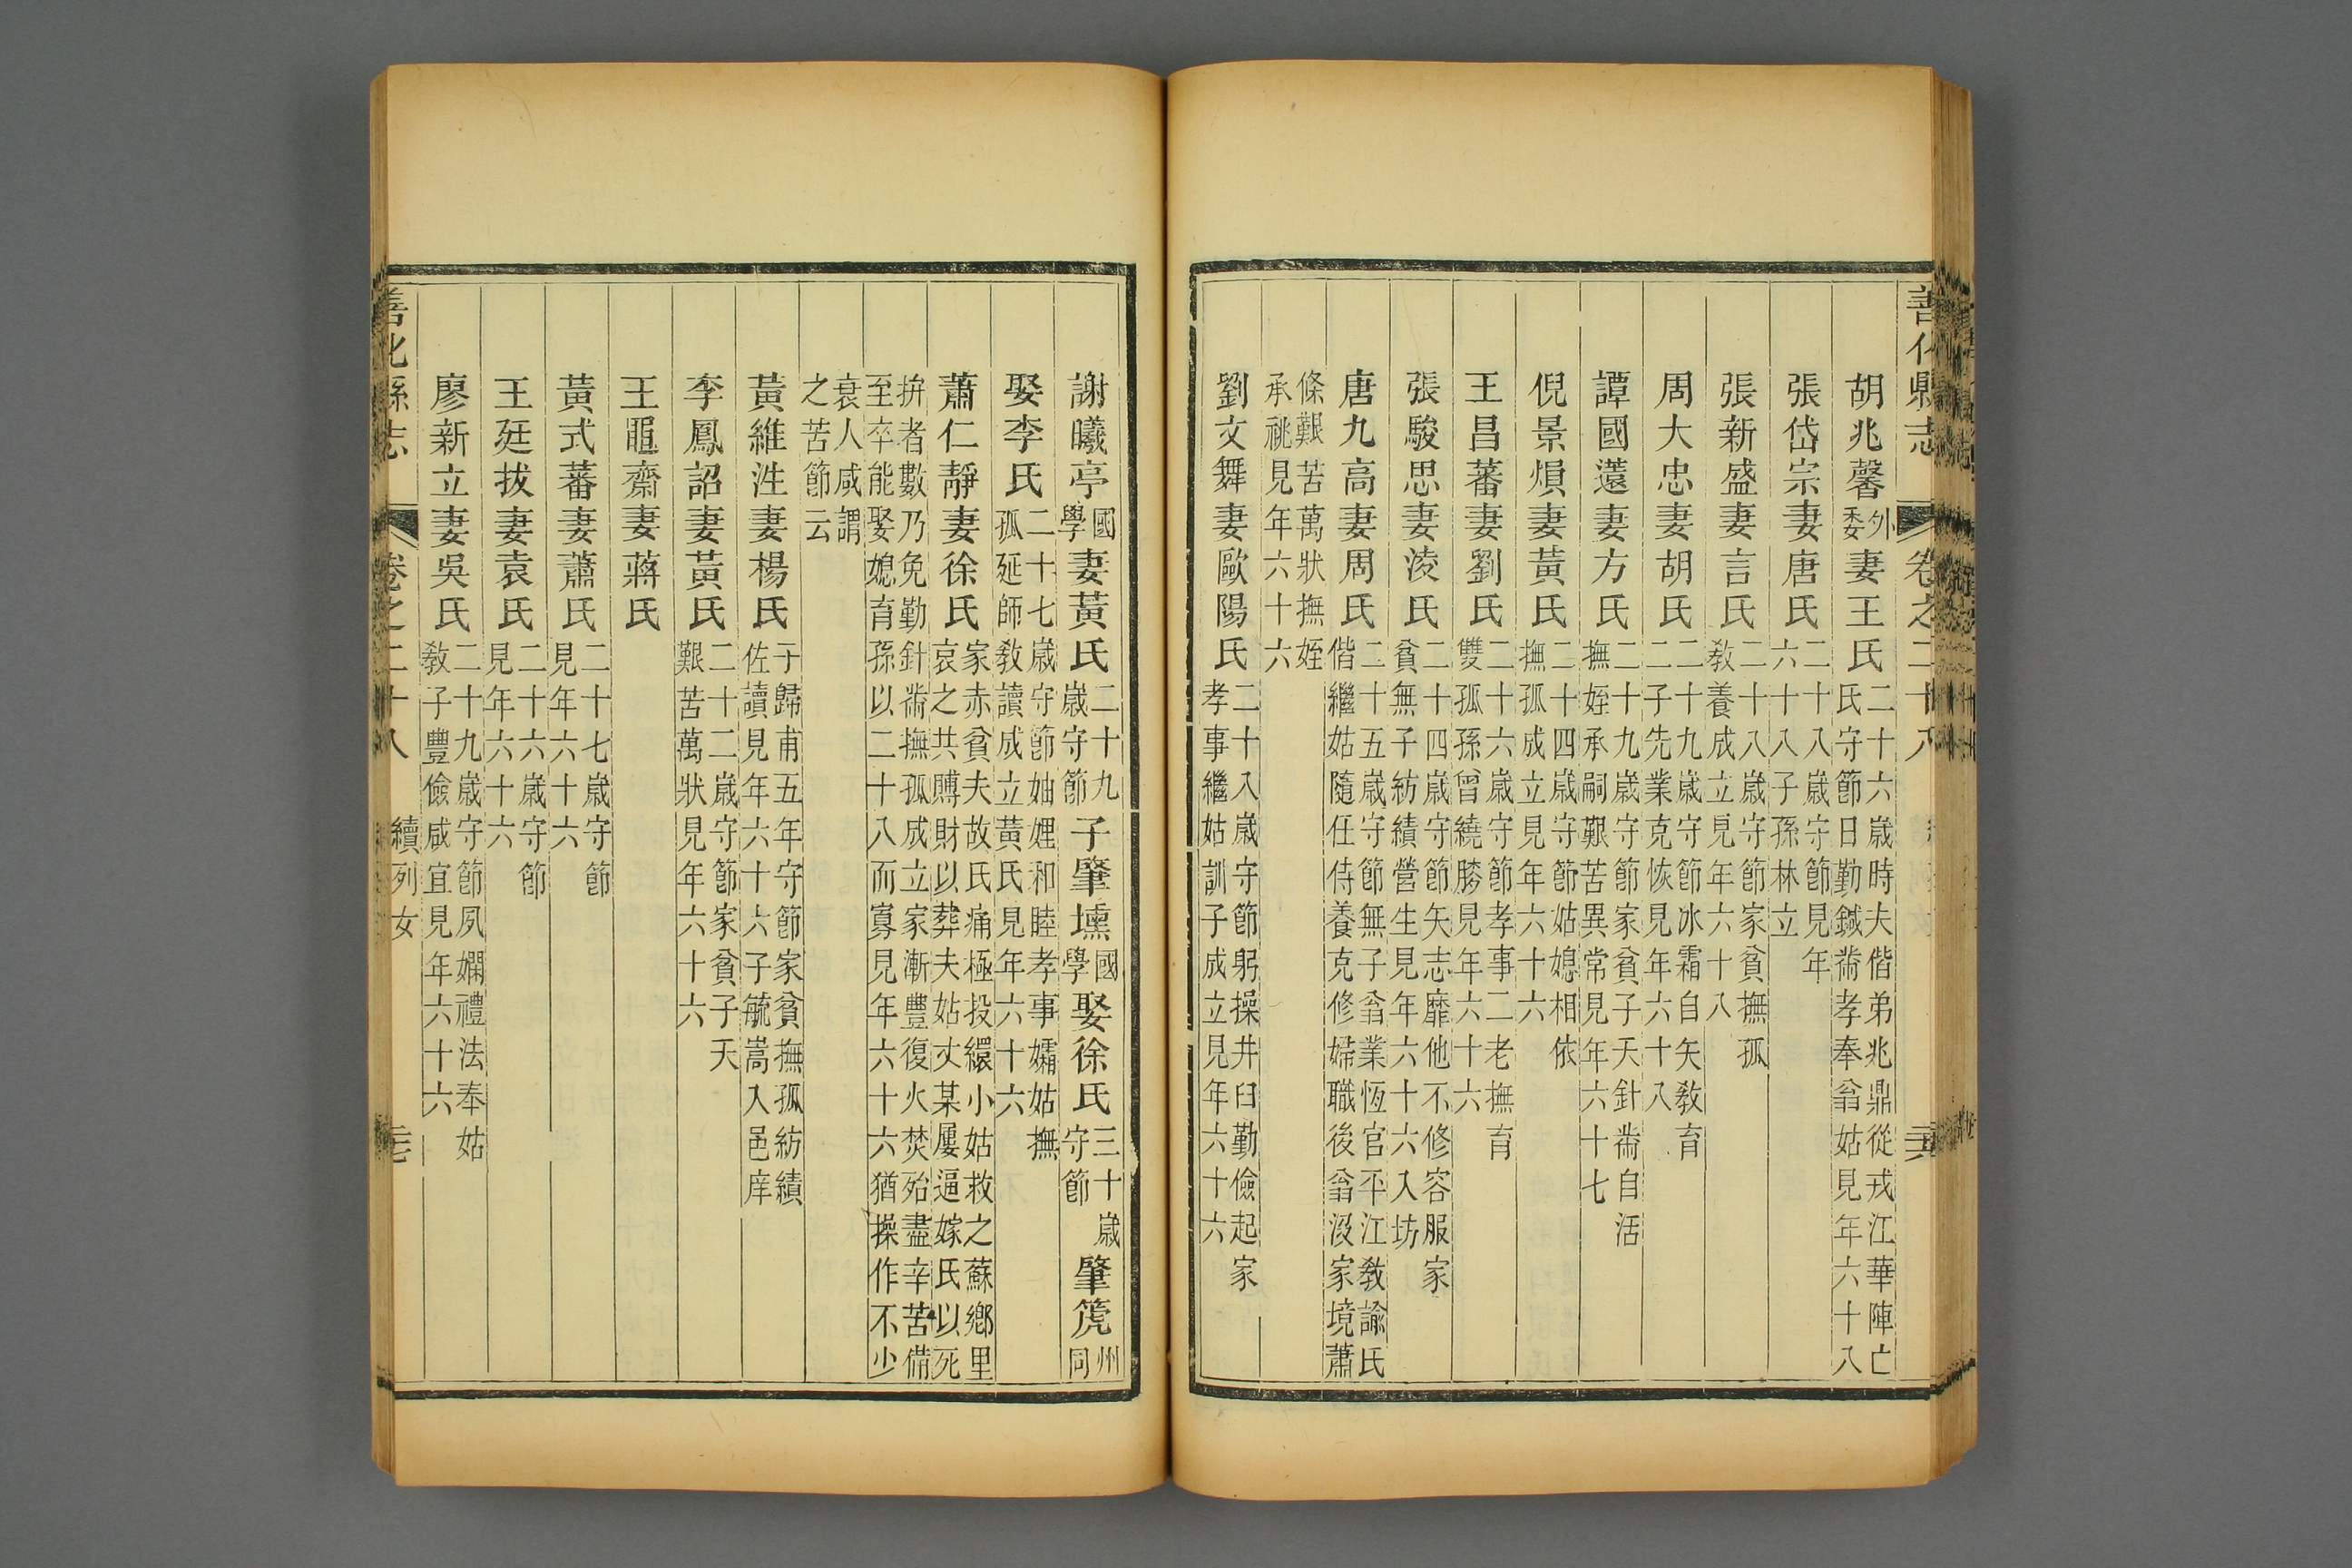 善化縣志 卷之二十八
胡兆馨外委妻王氏二十六歲時夫偕弟兆鼎從戎江華陣亡氏守節日勤鍼黹孝奉翁姑見年六十八
張岱宗妻唐氏二十八歲守節見年六十八子孫林立
張新盛妻言氏二十八歲守節家貧撫孤教養成立見年六十八
周大忠妻胡氏二十九歲守節冰霜自矢教育二子先業克恢見年六十八
譚國薳妻方氏二十九歲守節家貧子夭針黹自活撫姪承嗣艱苦異常見年六十七
倪景熉妻黃氏二十四歲守節姑媳相依撫孤成立見年六十六
王昌蕃妻劉氏二十六歲守節孝事二老撫育雙孤孫曾繞膝見年六十六
張駿思妻淩氏二十四歲守節矢志靡他不修容服家貧無子紡績營生見年六十六入坊
唐九高妻周氏二十五歲守節無子翁業恆官平江教諭氏偕繼姑隨任侍養克修婦職後翁沒家境蕭
條艱苦萬狀撫姪承祧見年六十六
劉文舞妻歐陽氏二十八歲守節躬操井臼勤儉起家孝事繼姑訓子成立見年六十六
謝曦亭國學妻黃氏二十九歲守節子肇壎國學娶徐氏三十歲守節肇箎州同
娶李氏二十七歲守節妯娌和睦孝事孀姑撫孤延師教讀成立黃氏見年六十六
蕭仁靜妻徐氏家赤貧夫故氏痛極投繯小姑救之蘇鄉里哀之共賻財以葬夫姑丈某屢逼嫁氏以死
拚者數乃免勤針黹撫孤成立家漸豐復火焚殆盡辛苦備至卒能娶媳育孫以二十八而寡見年六十六猶操作不少
衰人咸謂之苦節云
黃維泩妻楊氏于歸甫五年守節家貧撫孤紡績佐讀見年六十六子毓嵩入邑庠
李鳳詔妻黃氏二十二歲守節家貧子夭艱苦萬狀見年六十六
王黽齋妻蔣氏
黃式蕃妻蕭氏二十七歲守節見年六十六
王廷拔妻袁氏二十六歲守節見年六十六
廖新立妻吳氏二十九歲守節夙嫻禮法奉姑教子豐儉咸宜見年六十六
善化縣志 卷之二十八 續列女